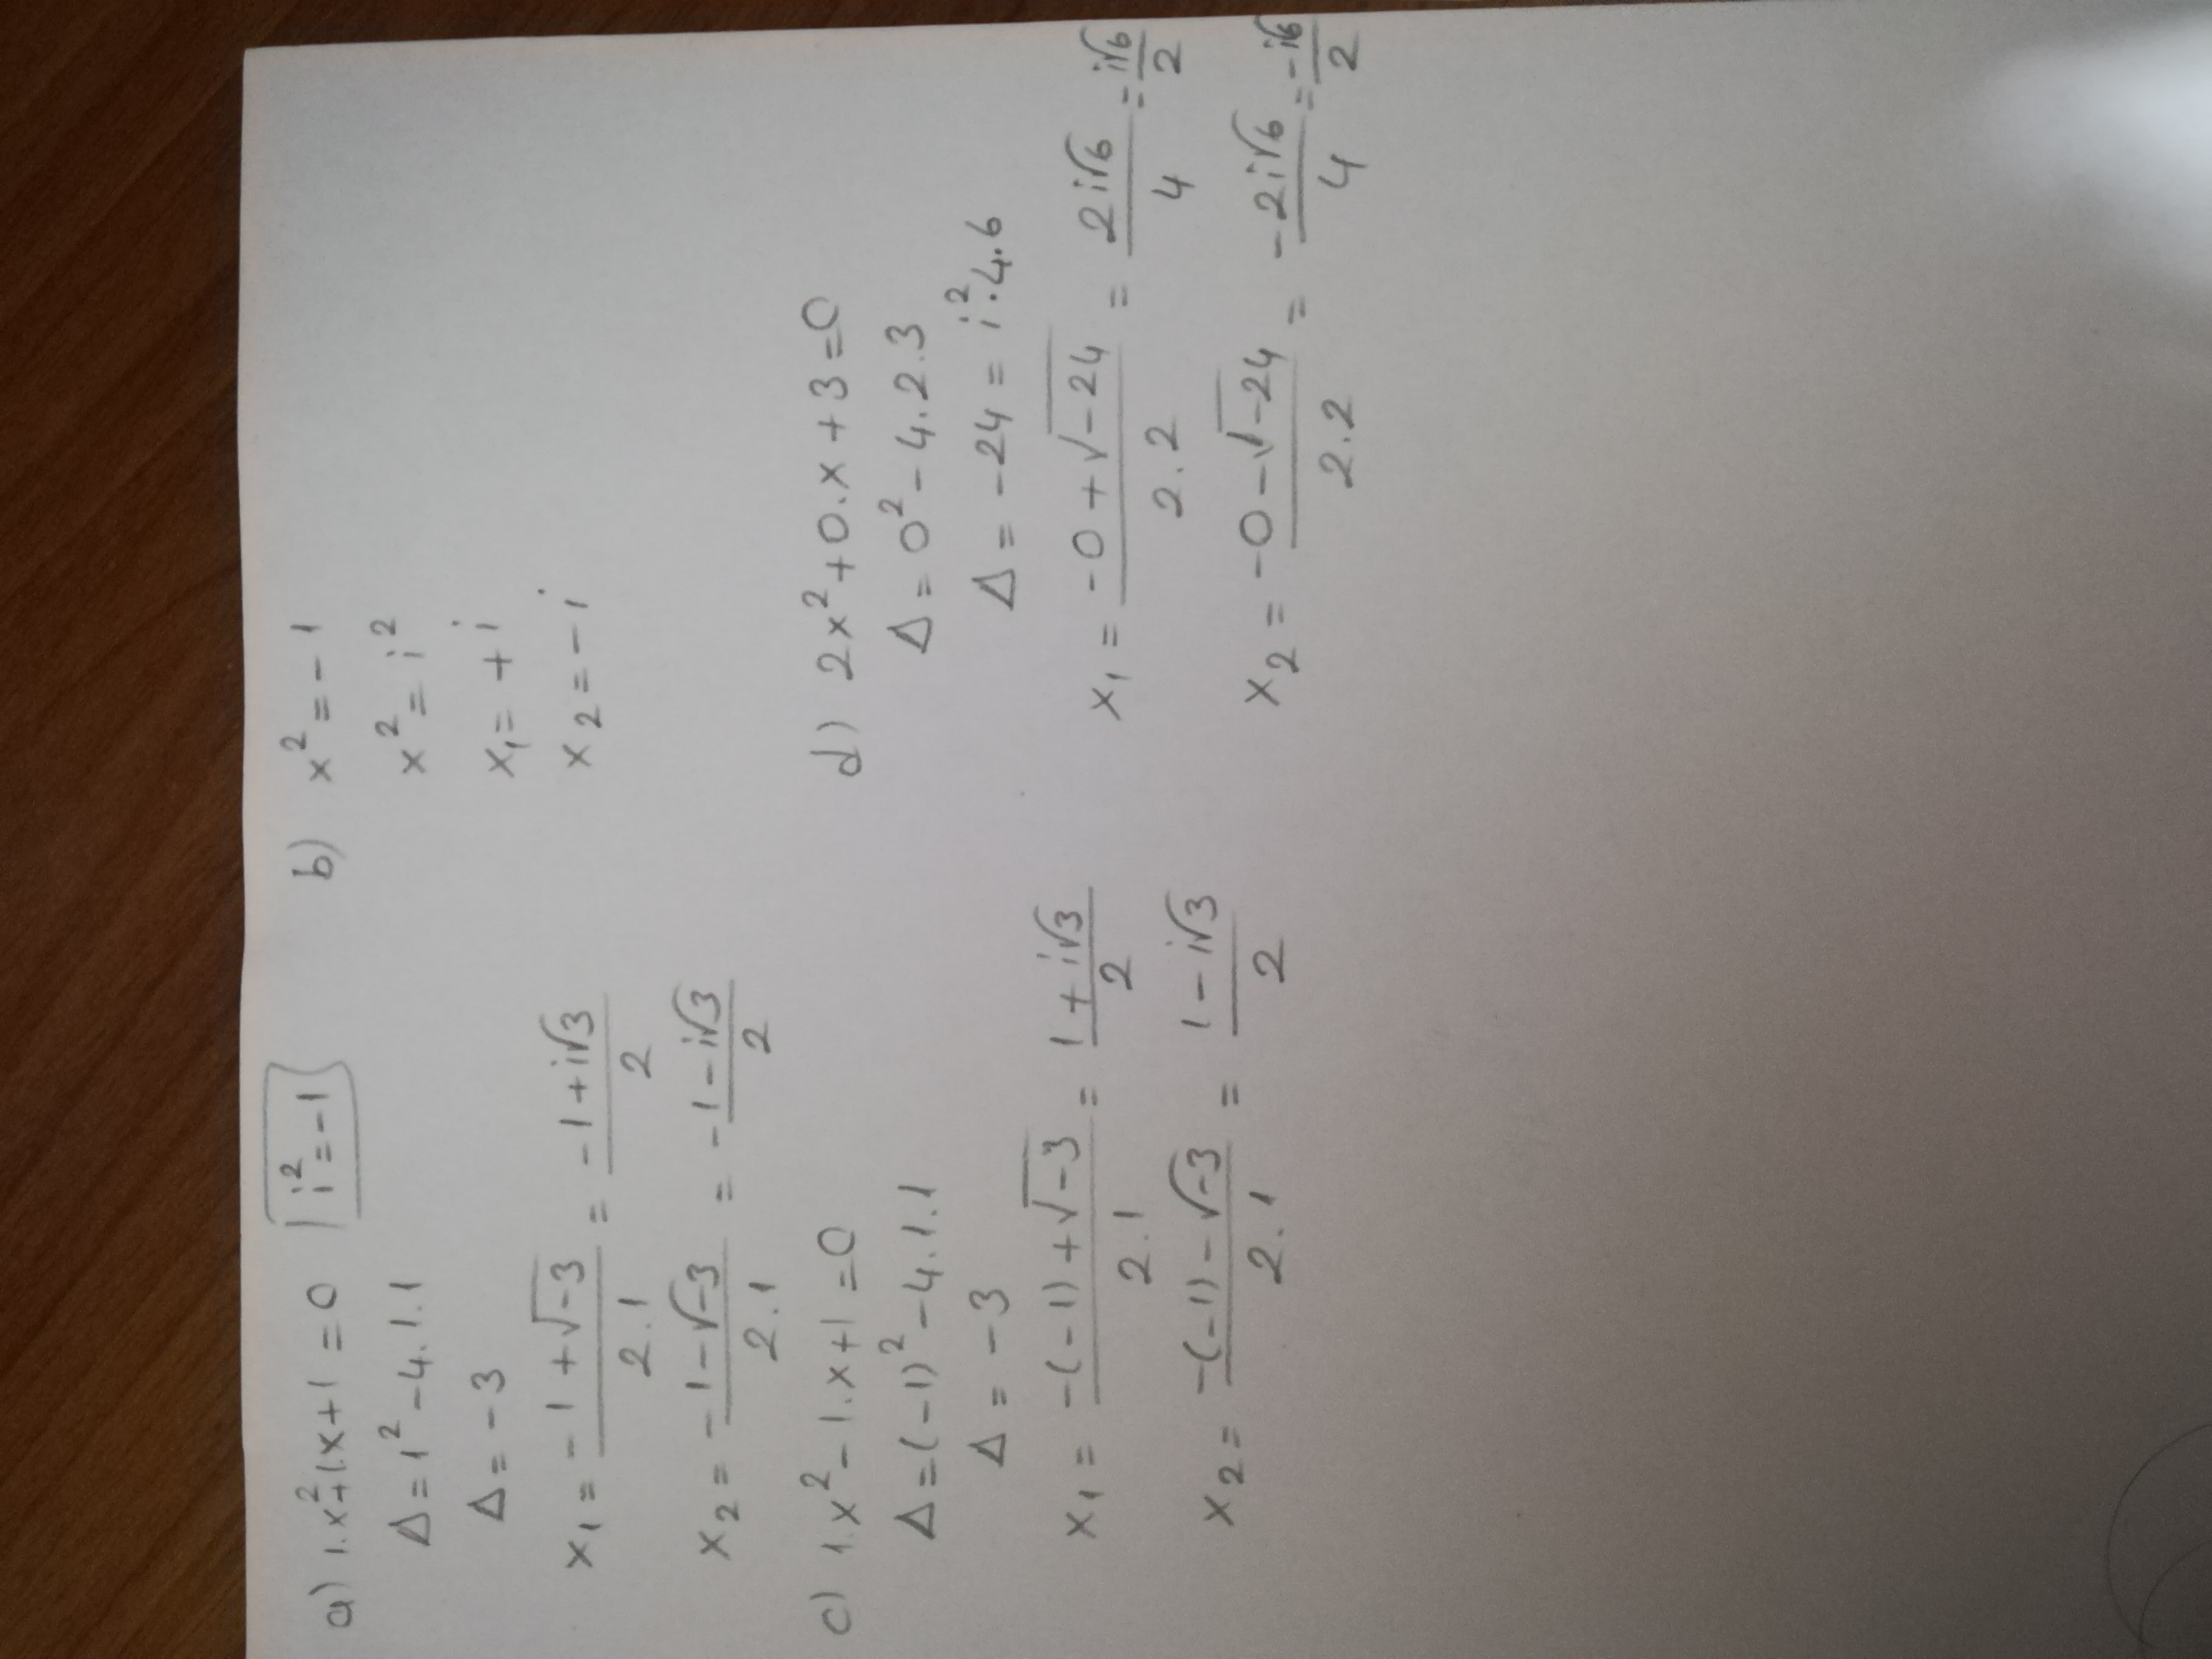 a) 1.x²+1.x+1=0 i²=-1
Δ=1²-4.1.1
Δ=-3
x₁= (-1+√-3)/(2.1) = (-1+i√3)/2
x₂= (-1-√-3)/(2.1) = (-1-i√3)/2
b) x²=-1
x²=i²
x₁=+i
x₂=-i
c) 1.x²-1.x+1=0
Δ=(-1)²-4.1.1
Δ=-3
x₁= (-(-1)+√-3)/(2.1) = (1+i√3)/2
x₂= (-(-1)-√-3)/(2.1) = (1-i√3)/2
d) 2x²+0.x+3=0
Δ=0²-4.2.3
Δ=-24=i².4.6
x₁= (-0+√-24)/(2.2) = (2i√6)/4 = (i√6)/2
x₂= (-0-√-24)/(2.2) = (-2i√6)/4 = (-i√6)/2